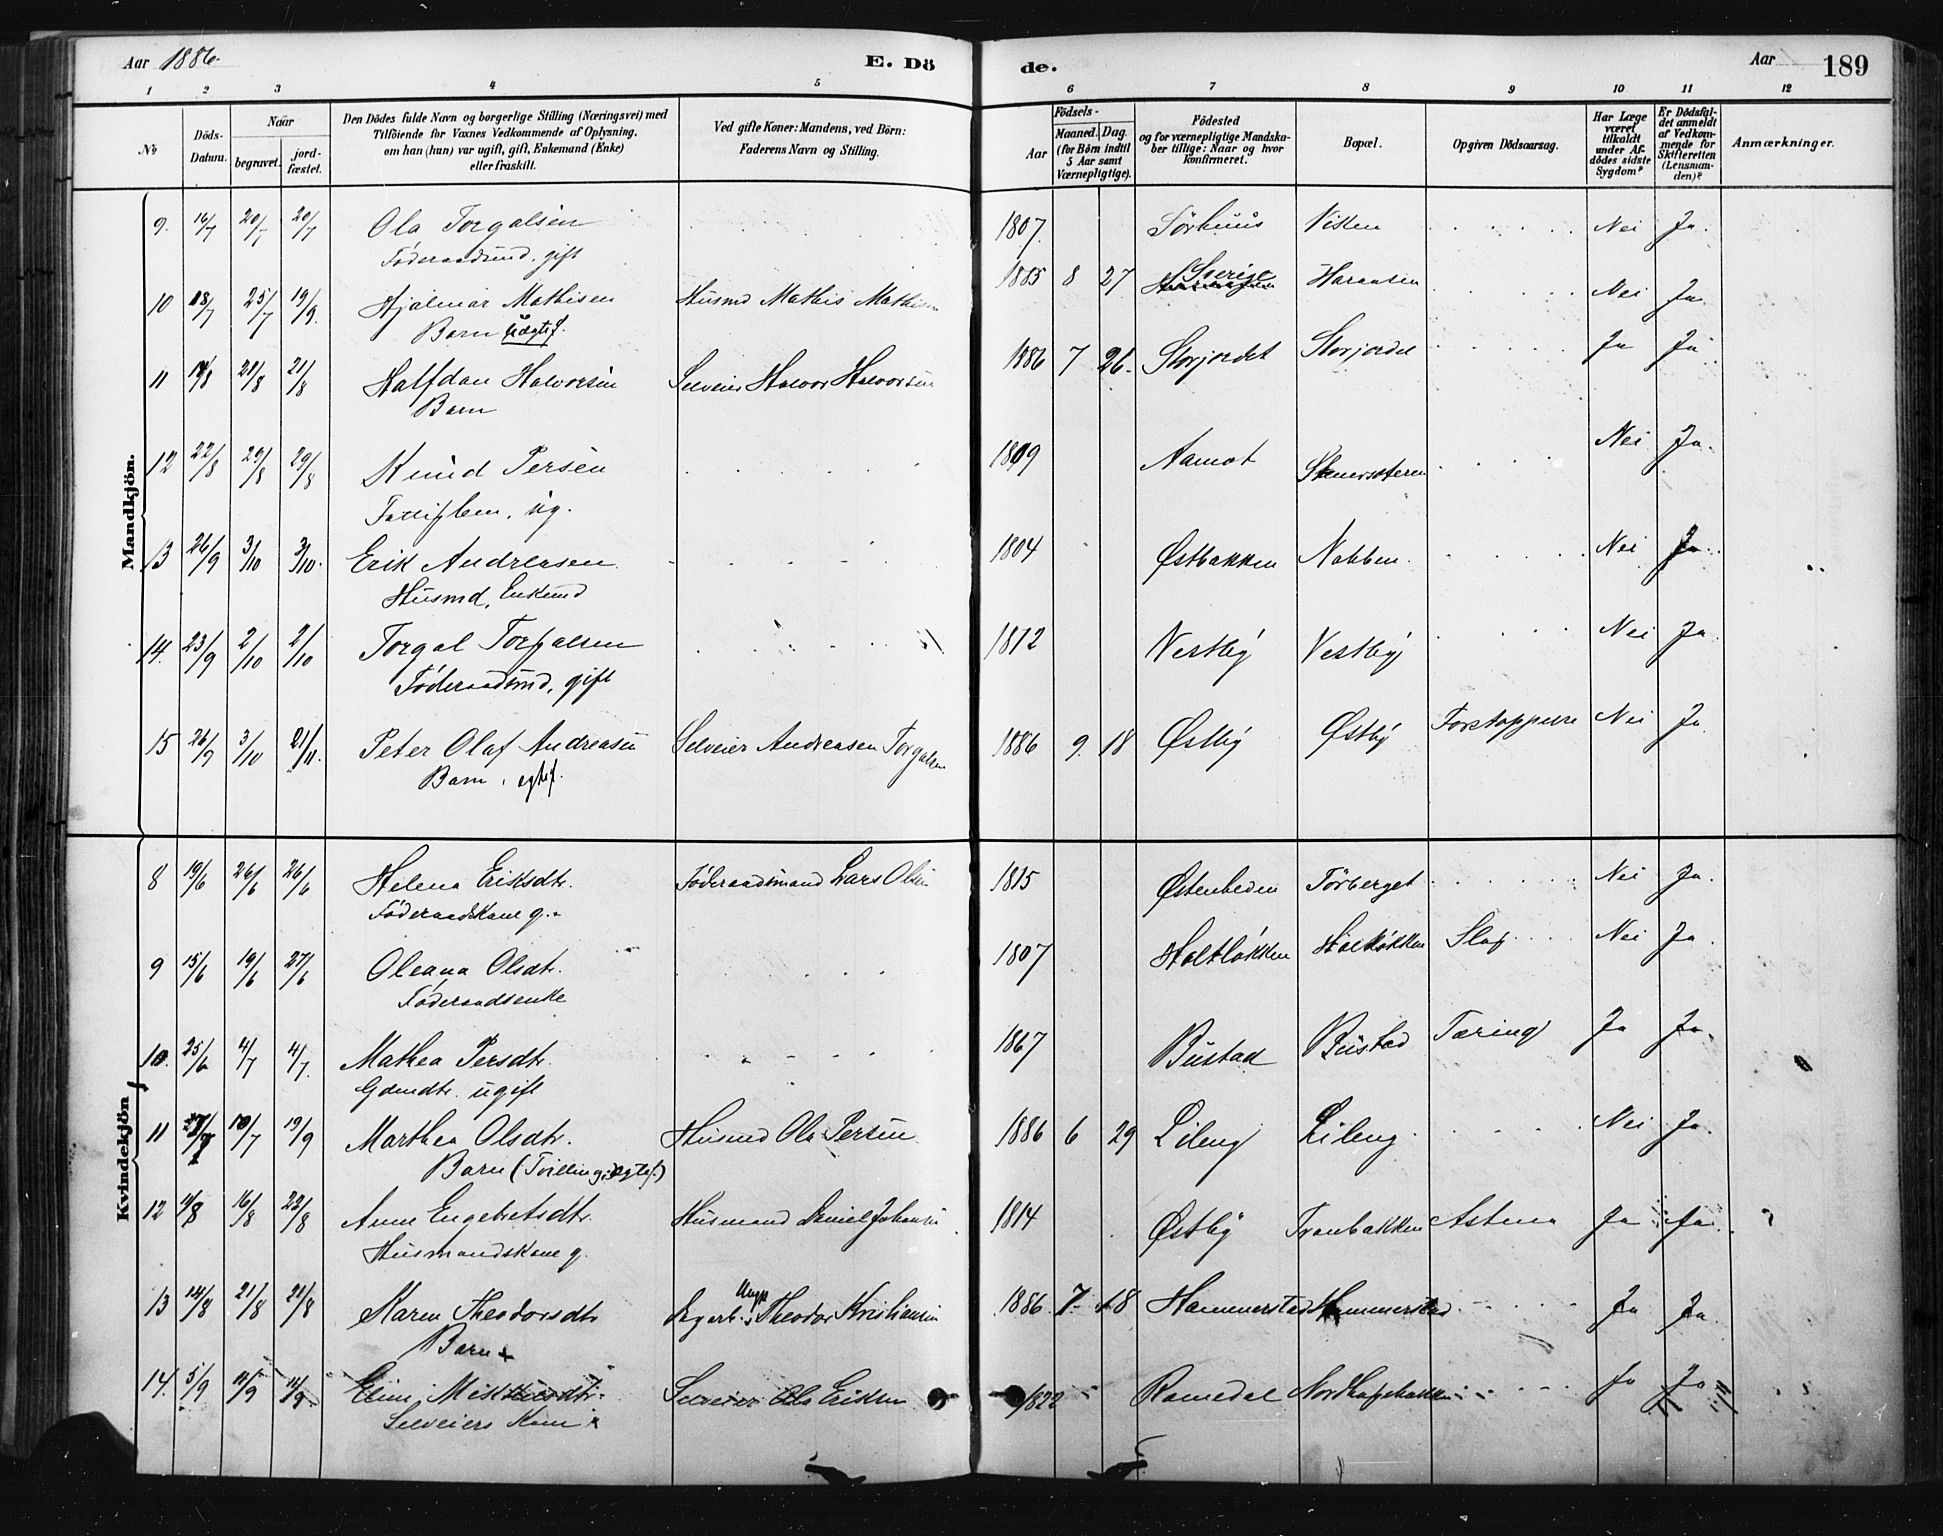 Aar 1886. E. Dö de. Aar 189
1 2 3 4 5 6 7 8 9 10 11 12
No
Döds-Datum.
Naar begravet. jord-fæstet.
Den Dödes fulde Navn og borgerlige Stilling (Næringsvei) med
Tilföiende for Voxnes Vedkommende af Oplysning,
om han (hun) var ugift, gift, Enkemand (Enke)
eller fraskilt.
Ved gifte Koner: Mandens, ved Börn:
Faderens Navn og Stilling.
Födsels-
Aar Maaned. Dag.
(for Börn indtil 5 Aar samt Værnepligtige).
Födested
og for værnepligtige Mandska-
ber tillige: Naar og hvor
konfirmeret.
Bopæl.
Opgiven Dödsaarsag.
Har Læge været tilkaldt under Af-dödes sidste Sygdom?
Er Dödsfal-det anmeldt af Vedkom-mende for Skifteretten (Lensman-den)?
Anmærkninger.
Mandkjön.
9. 16/7 20/7 20/7 Ola Torgalsen 1807. Sörhuus Visken Nei Ja.
Föderaadsmd. gift
10 18/7 25/7 19/9. Hjalmar Mathisen Husmd Mathis Mathisen 1885 8 27 Sverige Haraasen Nei Ja.
Barn Uægtef.
11 14/8 21/8 21/8 Halfdan Halvorsen Selveier Halvor Halvorsen 1886 7 26. Storjordet Storjordet Ja Ja
Barn
12 22/8 29/8 29/8 Knud Persen 1809 Aamot Nei Ja.
Fattiglem, ug.
13 26/9 3/10 3/10. Erik Andreasen 1804 Østbakken Nabben. Nei Ja.
Husmd, Enkemd
14. 23/9 2/10 2/10 Torgal Torgalsen 1812 Vestby Vestby Nei Ja.
Föderaadsmd, gift
15 26/9 3/10 21/11. Peter Olaf Andreasen Selveier Andreasen Torgalsen 1886 9. 18 Østby Østby Forstoppelse Nei Ja
Barn, egtef.
Kvindekjön
8 19/6 26/6 26/6 Helena Eriksdtr. Föderaadsmand Lars Olsen 1815 Østenheden Törberget Nei Ja.
Föderaadskone g.
9 15/6 19/6 27/6 Oleana Olsdtr. 1807 Holtløkken Holtløkken Slag Nei Ja.
Föderaadsenke
10. 25/6 4/7 4/7. Mathea Persdtr. 1867 Bustad Bustad Tæring Ja Ja.
Gdmdtr. ugift
11 10/7 19/9 Marthea Olsdtr. Husmd Ola Persen 1886 6 29 Lileng Lileng Nei Ja.
Barn (Tvilling, ægtef.)
12 11/8 16/8 22/8 Anne Engebretsdtr. Husmand Daniel Johansen 1814 Østby Tranbakken Astma Ja Ja.
Husmandskone g.
13 14/8 21/8 21/8 Karen Theodorsdtr Ungk. Theodor Kristiansen 1886. 7. 18 Hammerstad Hammerstad Ja Ja.
Barn
14. 5/9 11/9 11/9 Eline Mikkelsdtr. Selveier Ola Eriksen 1822 Romedal Ja Ja
Selveiers Kone